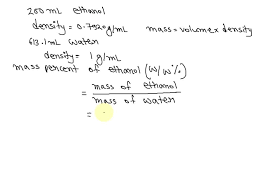 200 mL ethanol
density = 0.7920g/mL mass = volume x density
613.1mL water
density = 1 g/mL
mass percent of ethanol (w/w%)
= mass of ethanol
mass of water
=